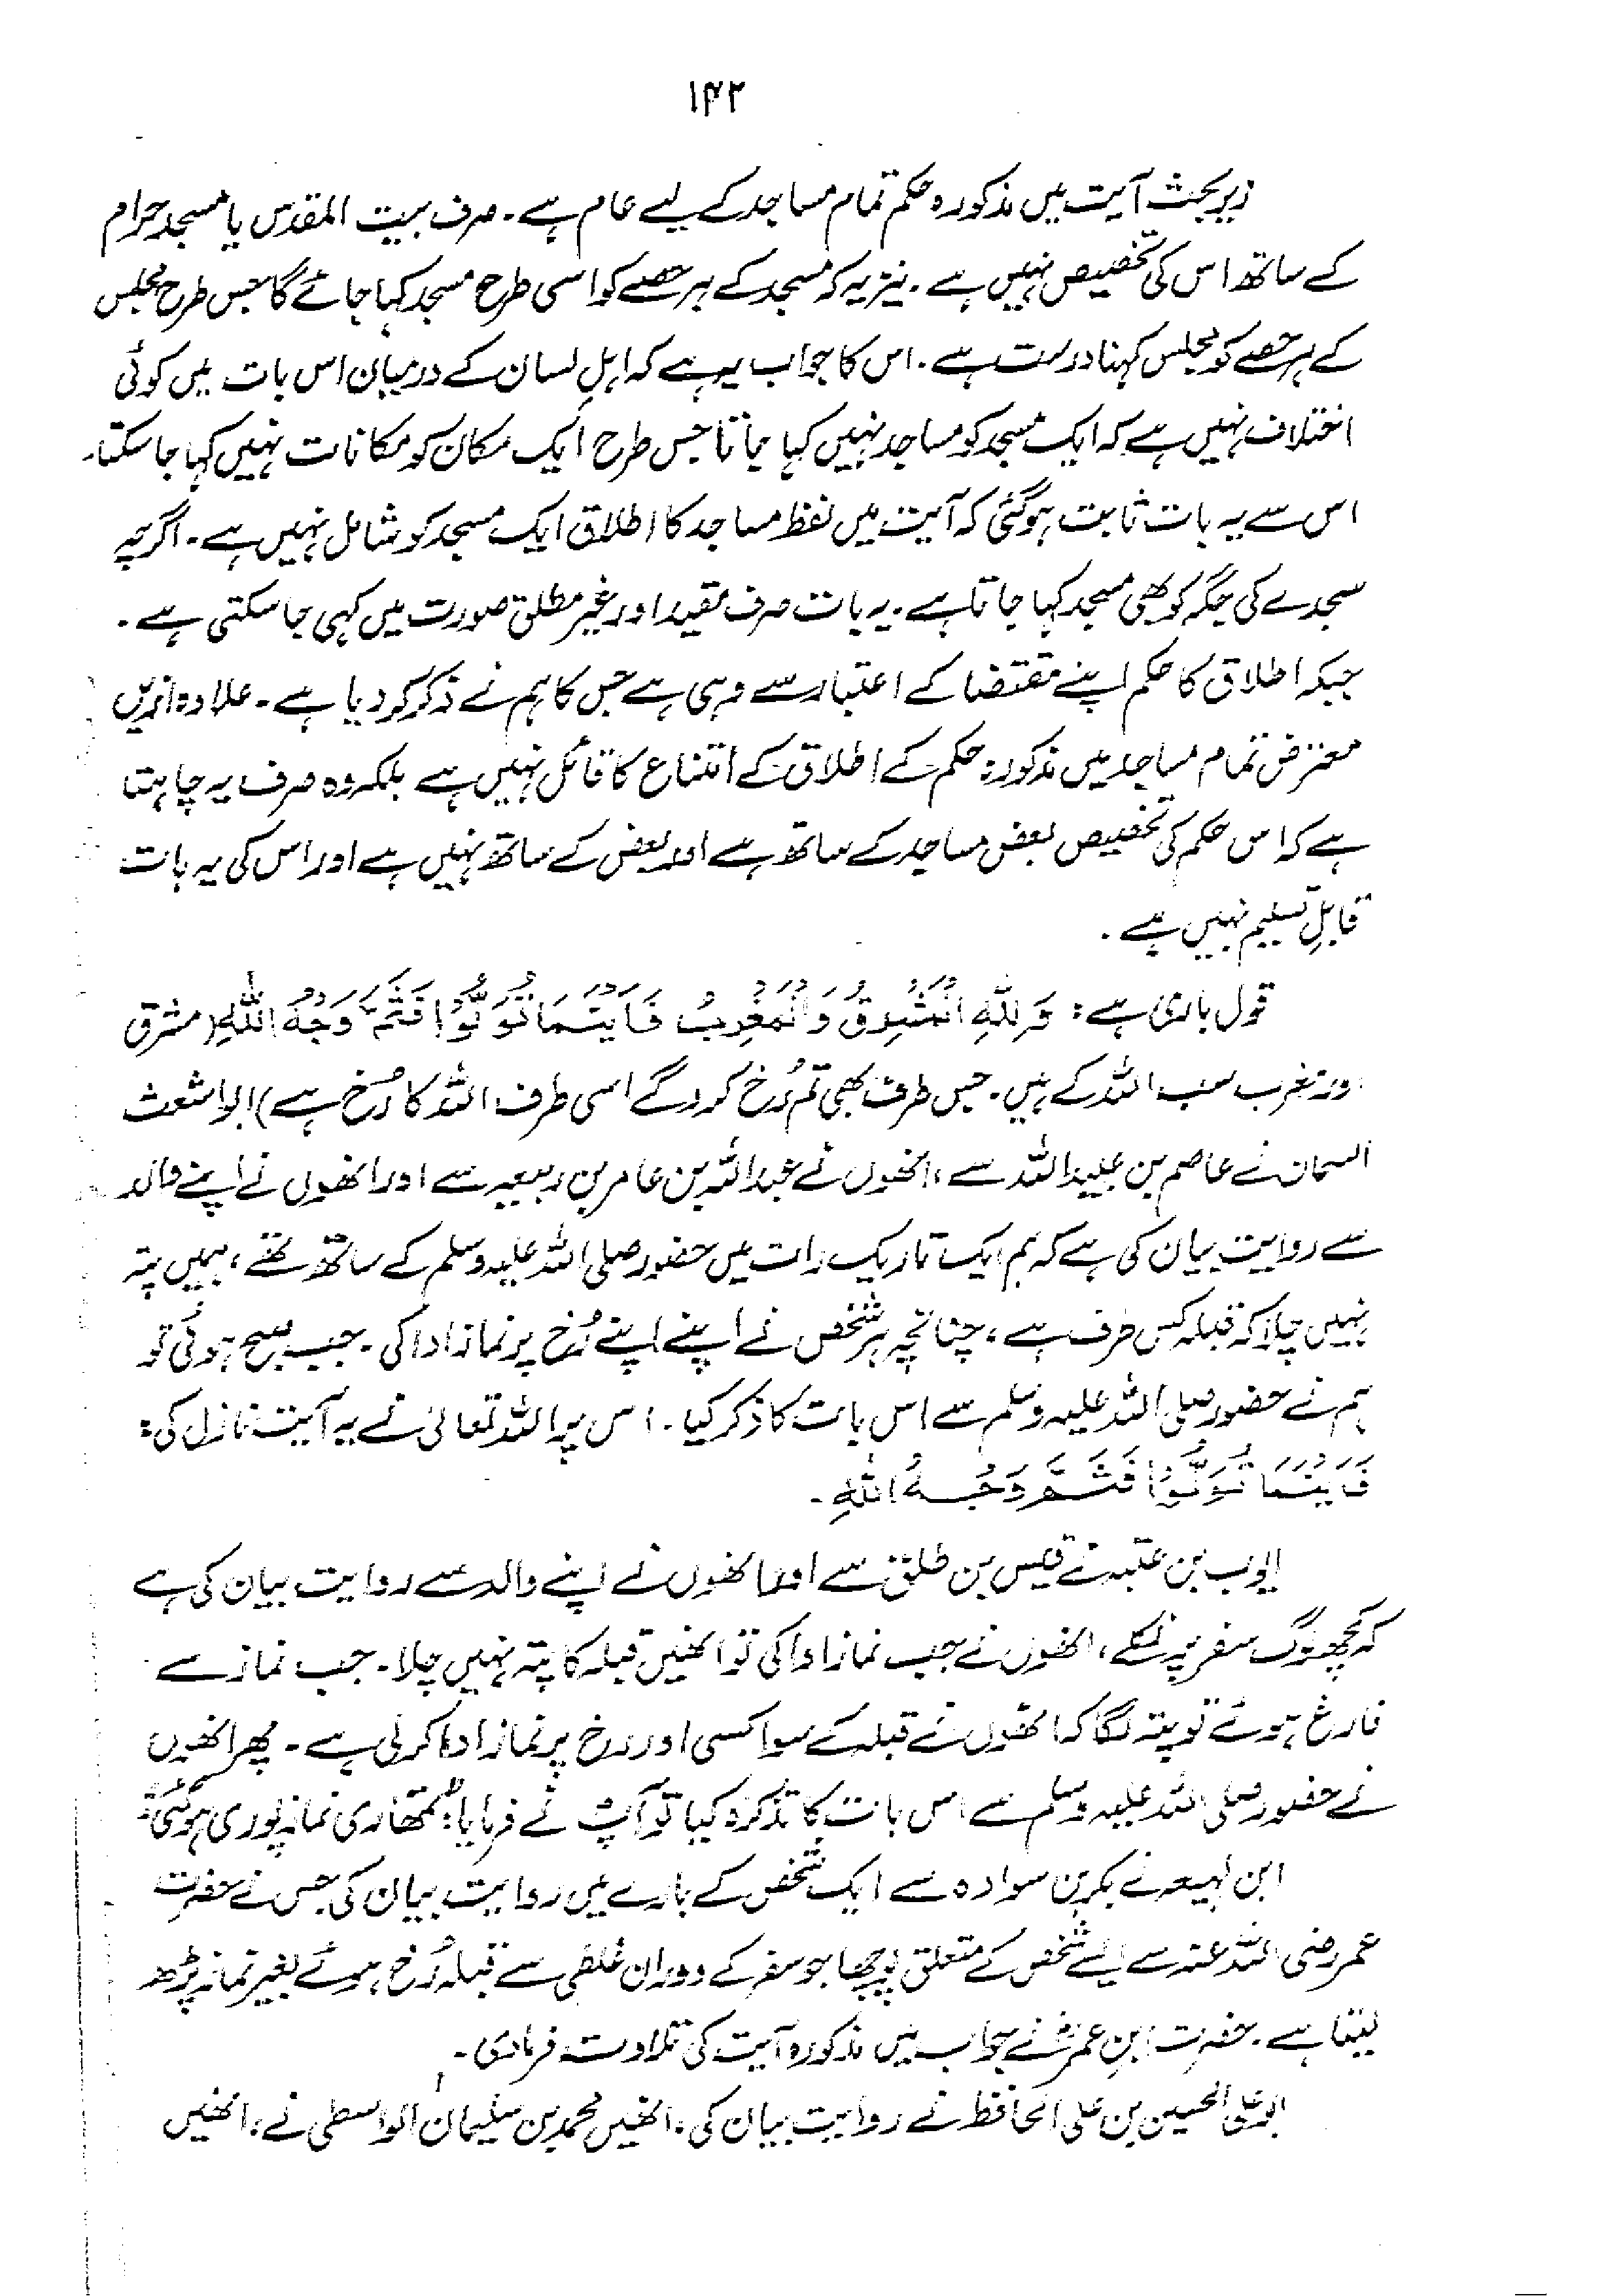 ۱۴۲
زیر بحث آیت میں مذکورہ حکم تمام مساجد کے لیے عام ہے۔ صرف بیت المقدس یا مسجد حرام
کے ساتھ اس کی تخصیص نہیں ہے۔ نیز یہ کہ مسجد کے ہر حصے کو اسی طرح مسجد کہا جائے گا جس طرح مجلس
کے ہر حصے کو مجلس کہنا درست ہے۔ اس کا جواب یہ ہے کہ اہلِ لسان کے درمیان اس بات میں کوئی
اختلاف نہیں ہے کہ ایک مسجد کو مساجد نہیں کہا جاتا جس طرح ایک مکان کو مکانات نہیں کہا جا سکتا۔
اس سے یہ بات ثابت ہوگئی کہ آیت میں لفظ مساجد کا اطلاق ایک مسجد کو شامل نہیں ہے۔ اگرچہ
سجدے کی جگہ کو بھی مسجد کہا جاتا ہے۔ یہ بات صرف مقید اور غیر مطلق صورت میں کہی جا سکتی ہے۔
جبکہ اطلاق کا حکم اپنے مقتضا کے اعتبار سے وہی ہے جس کا ہم نے ذکر کر دیا ہے۔ علاوہ ازیں
معترض تمام مساجد میں مذکورہ حکم کے اطلاق کے امتناع کا قائل نہیں ہے بلکہ وہ صرف یہ چاہتا
ہے کہ اس حکم کی تخصیص بعض مساجد کے ساتھ ہے اور بعض کے ساتھ نہیں ہے اور اس کی یہ بات
قابلِ تسلیم نہیں ہے۔
قول باری ہے: وَلِلّٰهِ الْمَشْرِقُ وَالْمَغْرِبُ فَاَيْنَمَا تُوَلُّوْا فَثَمَّ وَجْهُ اللّٰهِ (مشرق
اور مغرب سب اللہ کے ہیں۔ جس طرف بھی تم رُخ کروگے اسی طرف اللہ کا رُخ ہے) ابوالاشعث
السمان نے عاصم بن عبیداللہ سے، انھوں نے عبداللہ بن عامر بن ربیعہ سے اور انھوں نے اپنے والد
سے روایت بیان کی ہے کہ ہم ایک تاریک رات میں حضور صلی اللہ علیہ وسلم کے ساتھ تھے، ہمیں پتہ
نہیں چلا کہ قبلہ کس طرف ہے، چنانچہ ہر شخص نے اپنے اپنے رُخ پر نماز ادا کی۔ جب صبح ہوئی تو
ہم نے حضور صلی اللہ علیہ وسلم سے اس بات کا ذکر کیا۔ اس پر اللہ تعالیٰ نے یہ آیت نازل کی:
فَاَيْنَمَا تُوَلُّوْا فَثَمَّ وَجْهُ اللّٰهِ۔
ایوب بن عتبہ نے قیس بن طلق سے اور انھوں نے اپنے والد سے روایت بیان کی ہے
کہ کچھ لوگ سفر پر نکلے، انھوں نے جب نماز ادا کی تو انھیں قبلہ کا پتہ نہیں چلا۔ جب نماز سے
فارغ ہوئے تو پتہ لگا کہ انھوں نے قبلہ کے سوا کسی اور رخ پر نماز ادا کرلی ہے۔ پھر انھوں
نے حضور صلی اللہ علیہ وسلم سے اس بات کا تذکرہ کیا تو آپ نے فرمایا: "تمھاری نماز پوری ہوگئی"
ابن لہیعہ نے بکر بن سوادہ سے ایک شخص کے بارے میں روایت بیان کی جس نے حضرت
عمر رضی اللہ عنہ سے ایسے شخص کے متعلق پوچھا جو سفر کے دوران غلطی سے قبلہ رُخ ہوئے بغیر نماز پڑھ
لیتا ہے۔ حضرت ابنِ عمرؓ نے جواب میں مذکورہ آیت کی تلاوت فرمادی۔
ابوعلی الحسین بن علی الحافظ نے روایت بیان کی، انھیں محمد بن سلیمان الواسطی نے، انھیں